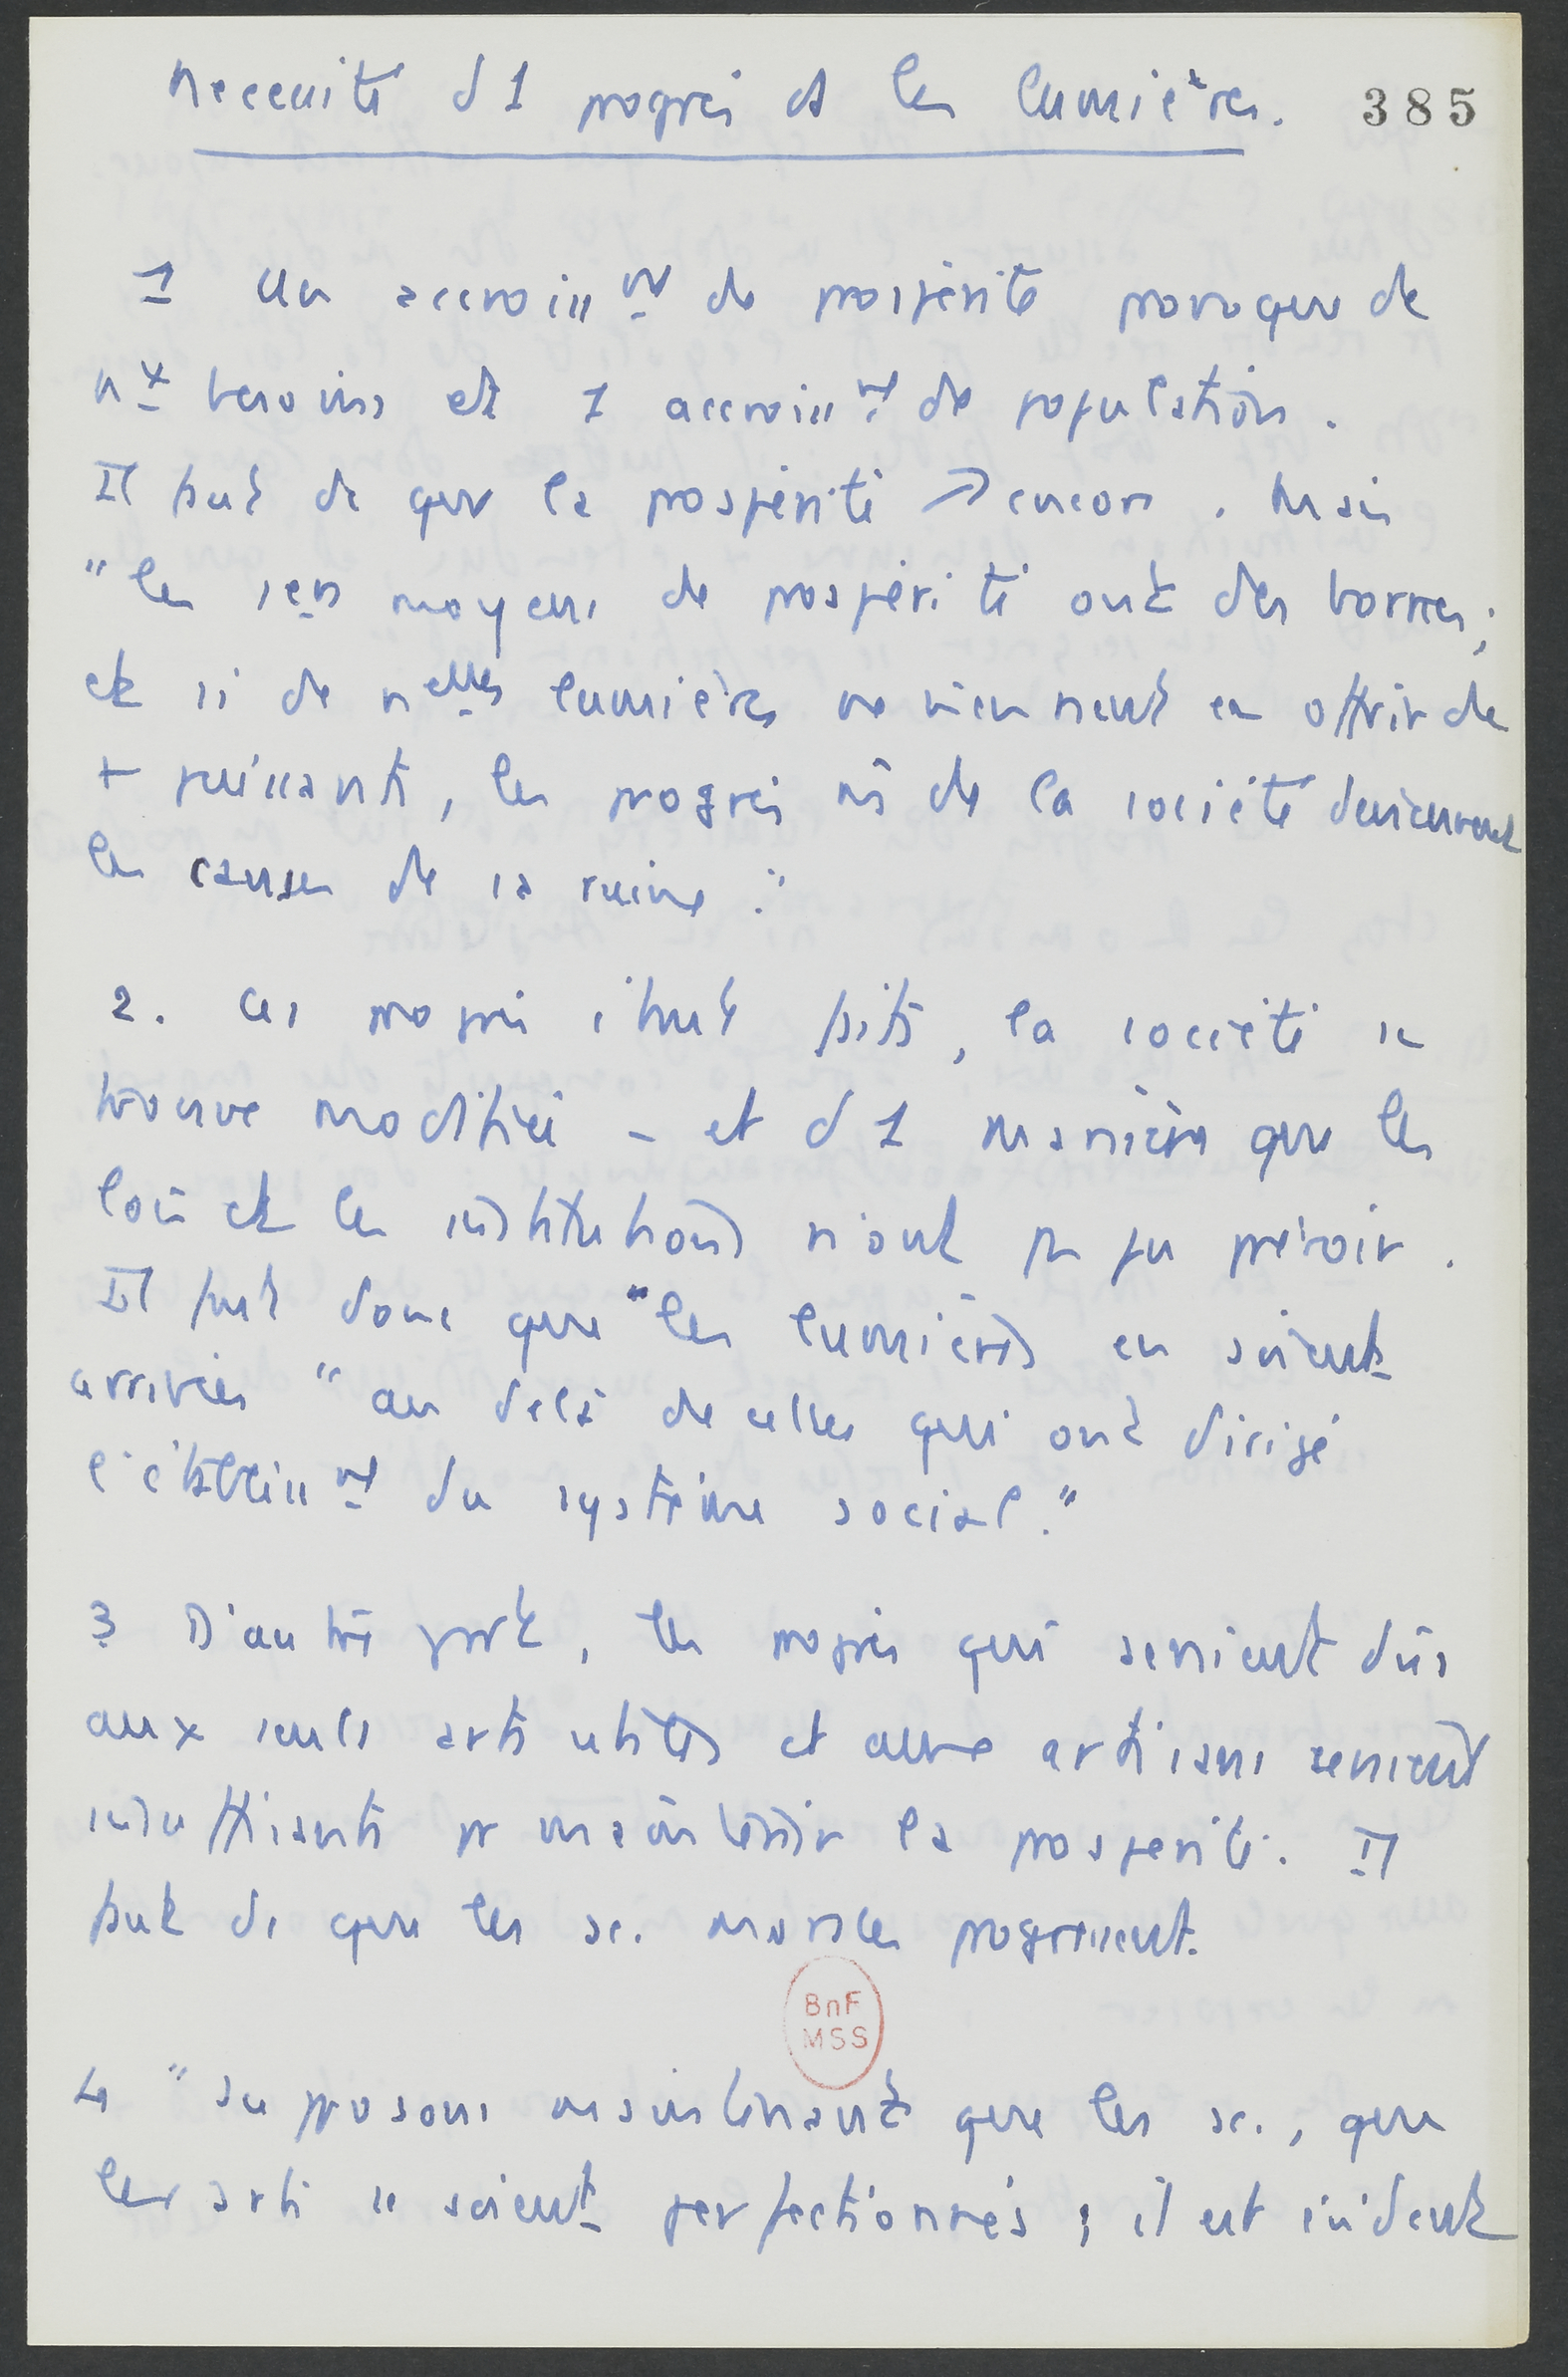 Necessité d 1 progrès ds les lumières. 385
1 Un accroisst de prospérité provoque de
nx besoins et 1 accroisst de population.
Il faut dc que la prospérité ↗ encore. Mais
"les 1ers moyens de prospérité ont des bornes;
et si de nelles lumières ne viennent en offrir de
+ puissants, les progrès m̂ de la société deviennent
les causes de sa ruine."
2. Ces progrès étant faits, la société se
trouve modifiée - et d 1 manière que les
lois et les institutions n'ont pas pu prévoir.
Il faut donc que "les lumières en soient
arrivées "au delà de celles qui ont dirigé
l'établisst du système social."
3 D'autre part, les progrès qui seraient dûs
aux seuls arts utiles et aux artisans seraient
insuffisants pr maintenir la prospérité. Il
faut dc que les sc. morales progressent.
BnF
MSS
4 "Supposons maintenant que les sc., que
les arts se soient perfectionnés; il est évident